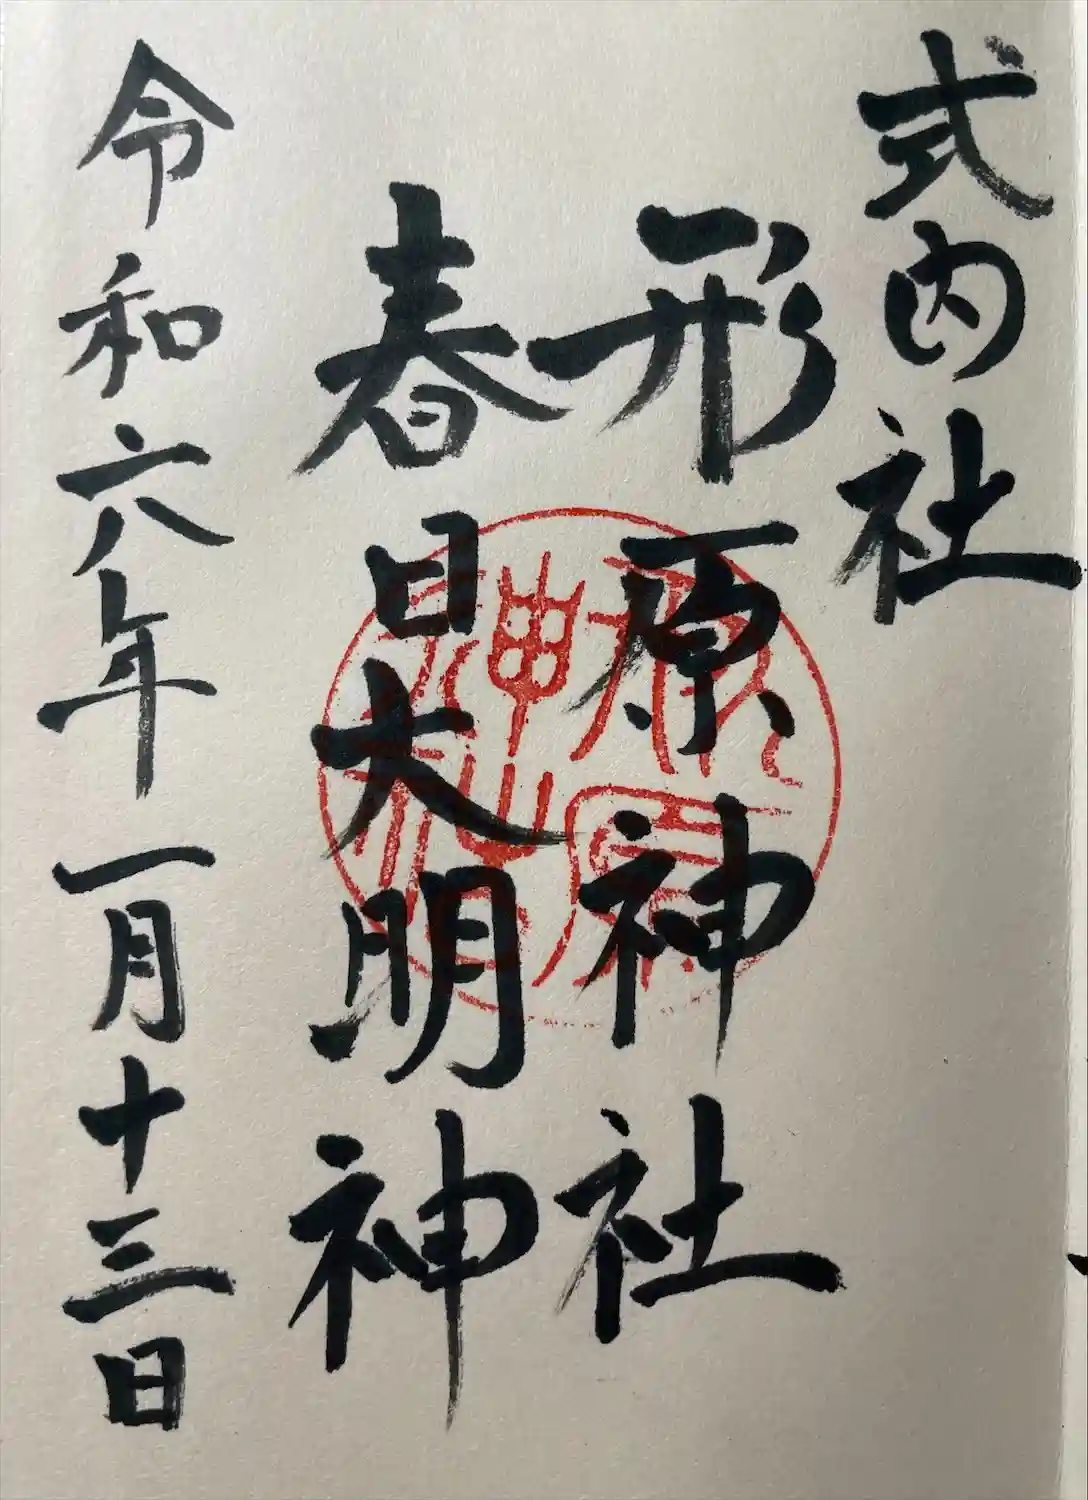 式内社
形原神社
春日大明神
令和六年一月十三日